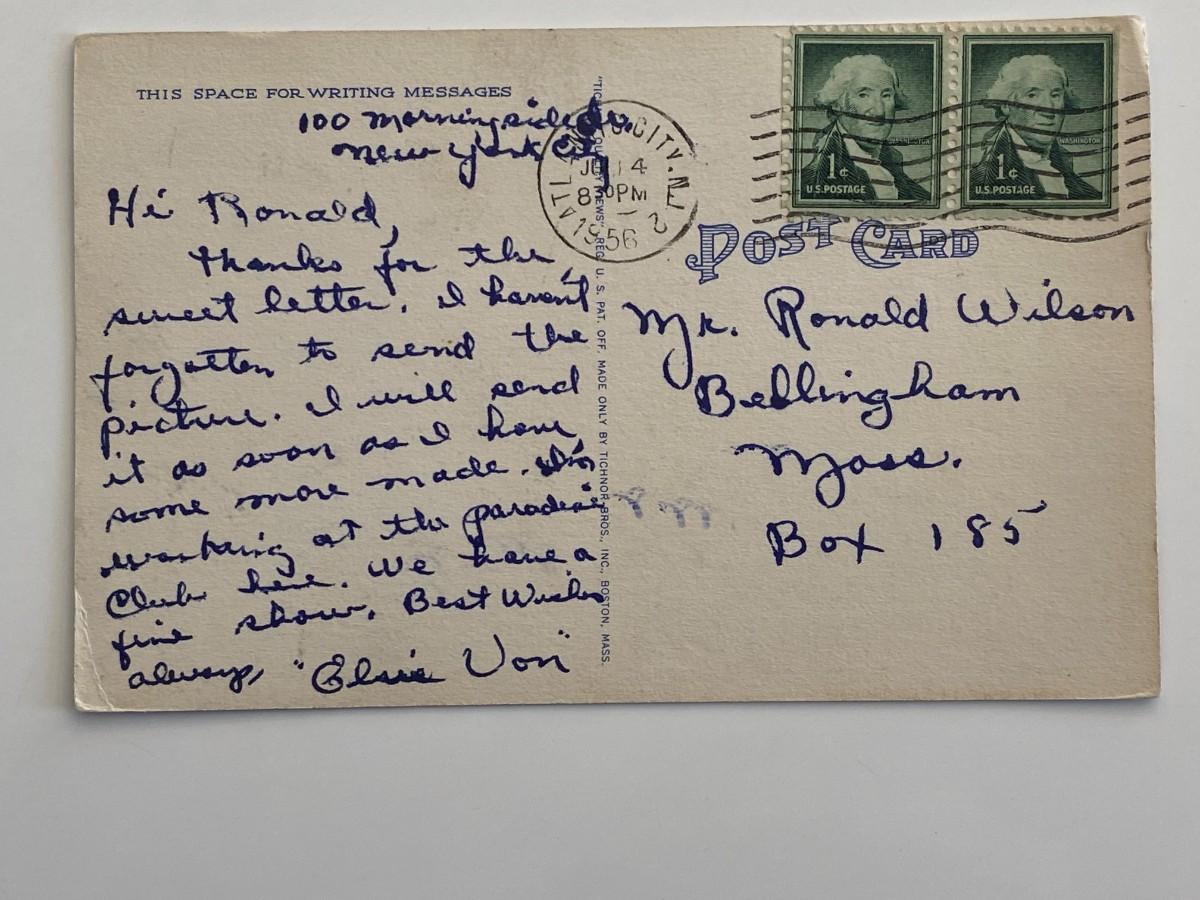 THIS SPACE FOR WRITING MESSAGES
100 Morningside Dr.
New York City
Hi Ronald,
Thanks for the
sweet letter. I haven't
forgotten to send the
picture. I will send
it as soon as I have
some more made. I'm
working at the paradise
Club here. We have a
fine show. Best Wishes
always, "Elsie Von"
"TICHNOR QUALITY VIEWS" REG. U. S. PAT. OFF. MADE ONLY BY TICHNOR BROS., INC., BOSTON, MASS.
ATLANTIC CITY. N.J.
14
830PM
1956
2
WASHINGTON
1¢
U.S. POSTAGE
WASHINGTON
1¢
U.S. POSTAGE
POST CARD
Mr. Ronald Wilson
Bellingham
Mass.
Box 185